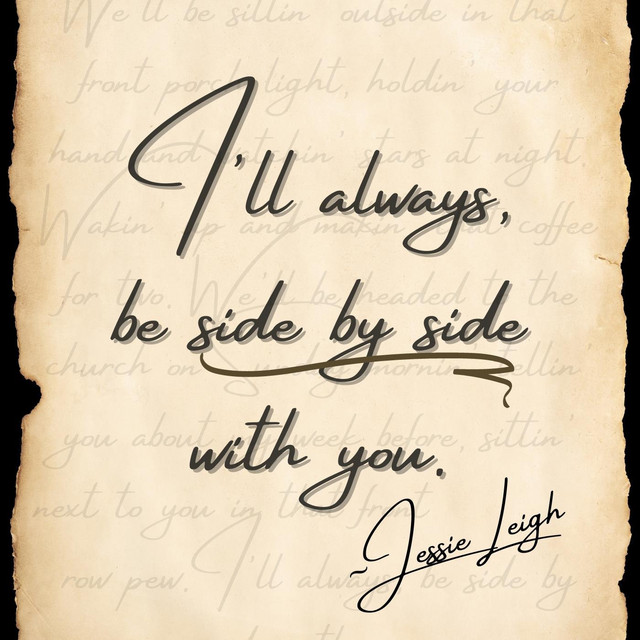 We'll be sittin' outside in that
front porch light, holdin' your
I'll always,
hand and watchin' stars at night.
Wakin' up and makin' that coffee
be side by side
for two. We'll be headed to the
church on Sunday mornin' tellin'
with you.
you about my week before, sittin'
next to you in that front
~Jessie Leigh
row pew. I'll always be side by